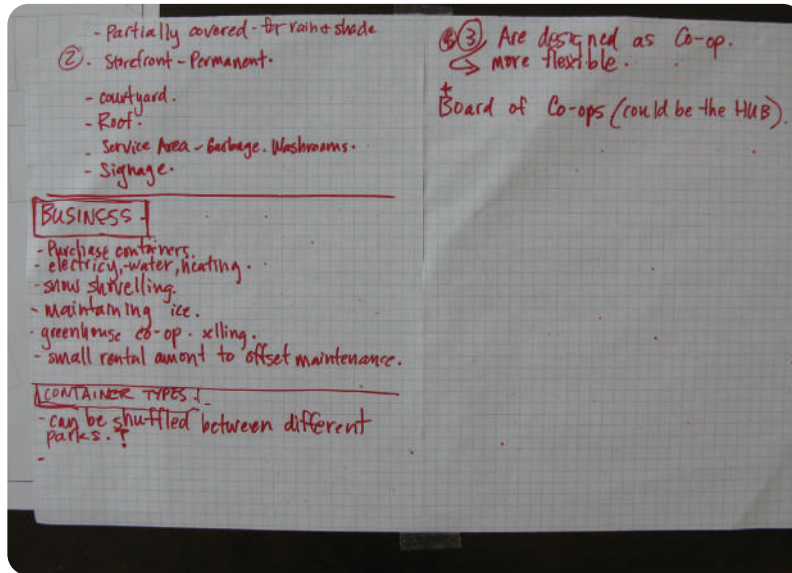 - Partially covered - for rain + shade
②. Storefront - Permanent.
- courtyard.
- Roof.
- Service Area - Garbage. Washrooms.
- Signage.
BUSINESS -
- Purchase containers.
- electricy, water, heating.
- snow shovelling.
- maintaining ice.
- greenhouse co-op - slling.
- small rental amont to offset maintenance.
CONTAINER TYPES.
- can be shuffled between different
parks. ?
-
③ Are designed as Co-op.
more flexible.
+
Board of Co-ops (could be the HUB).